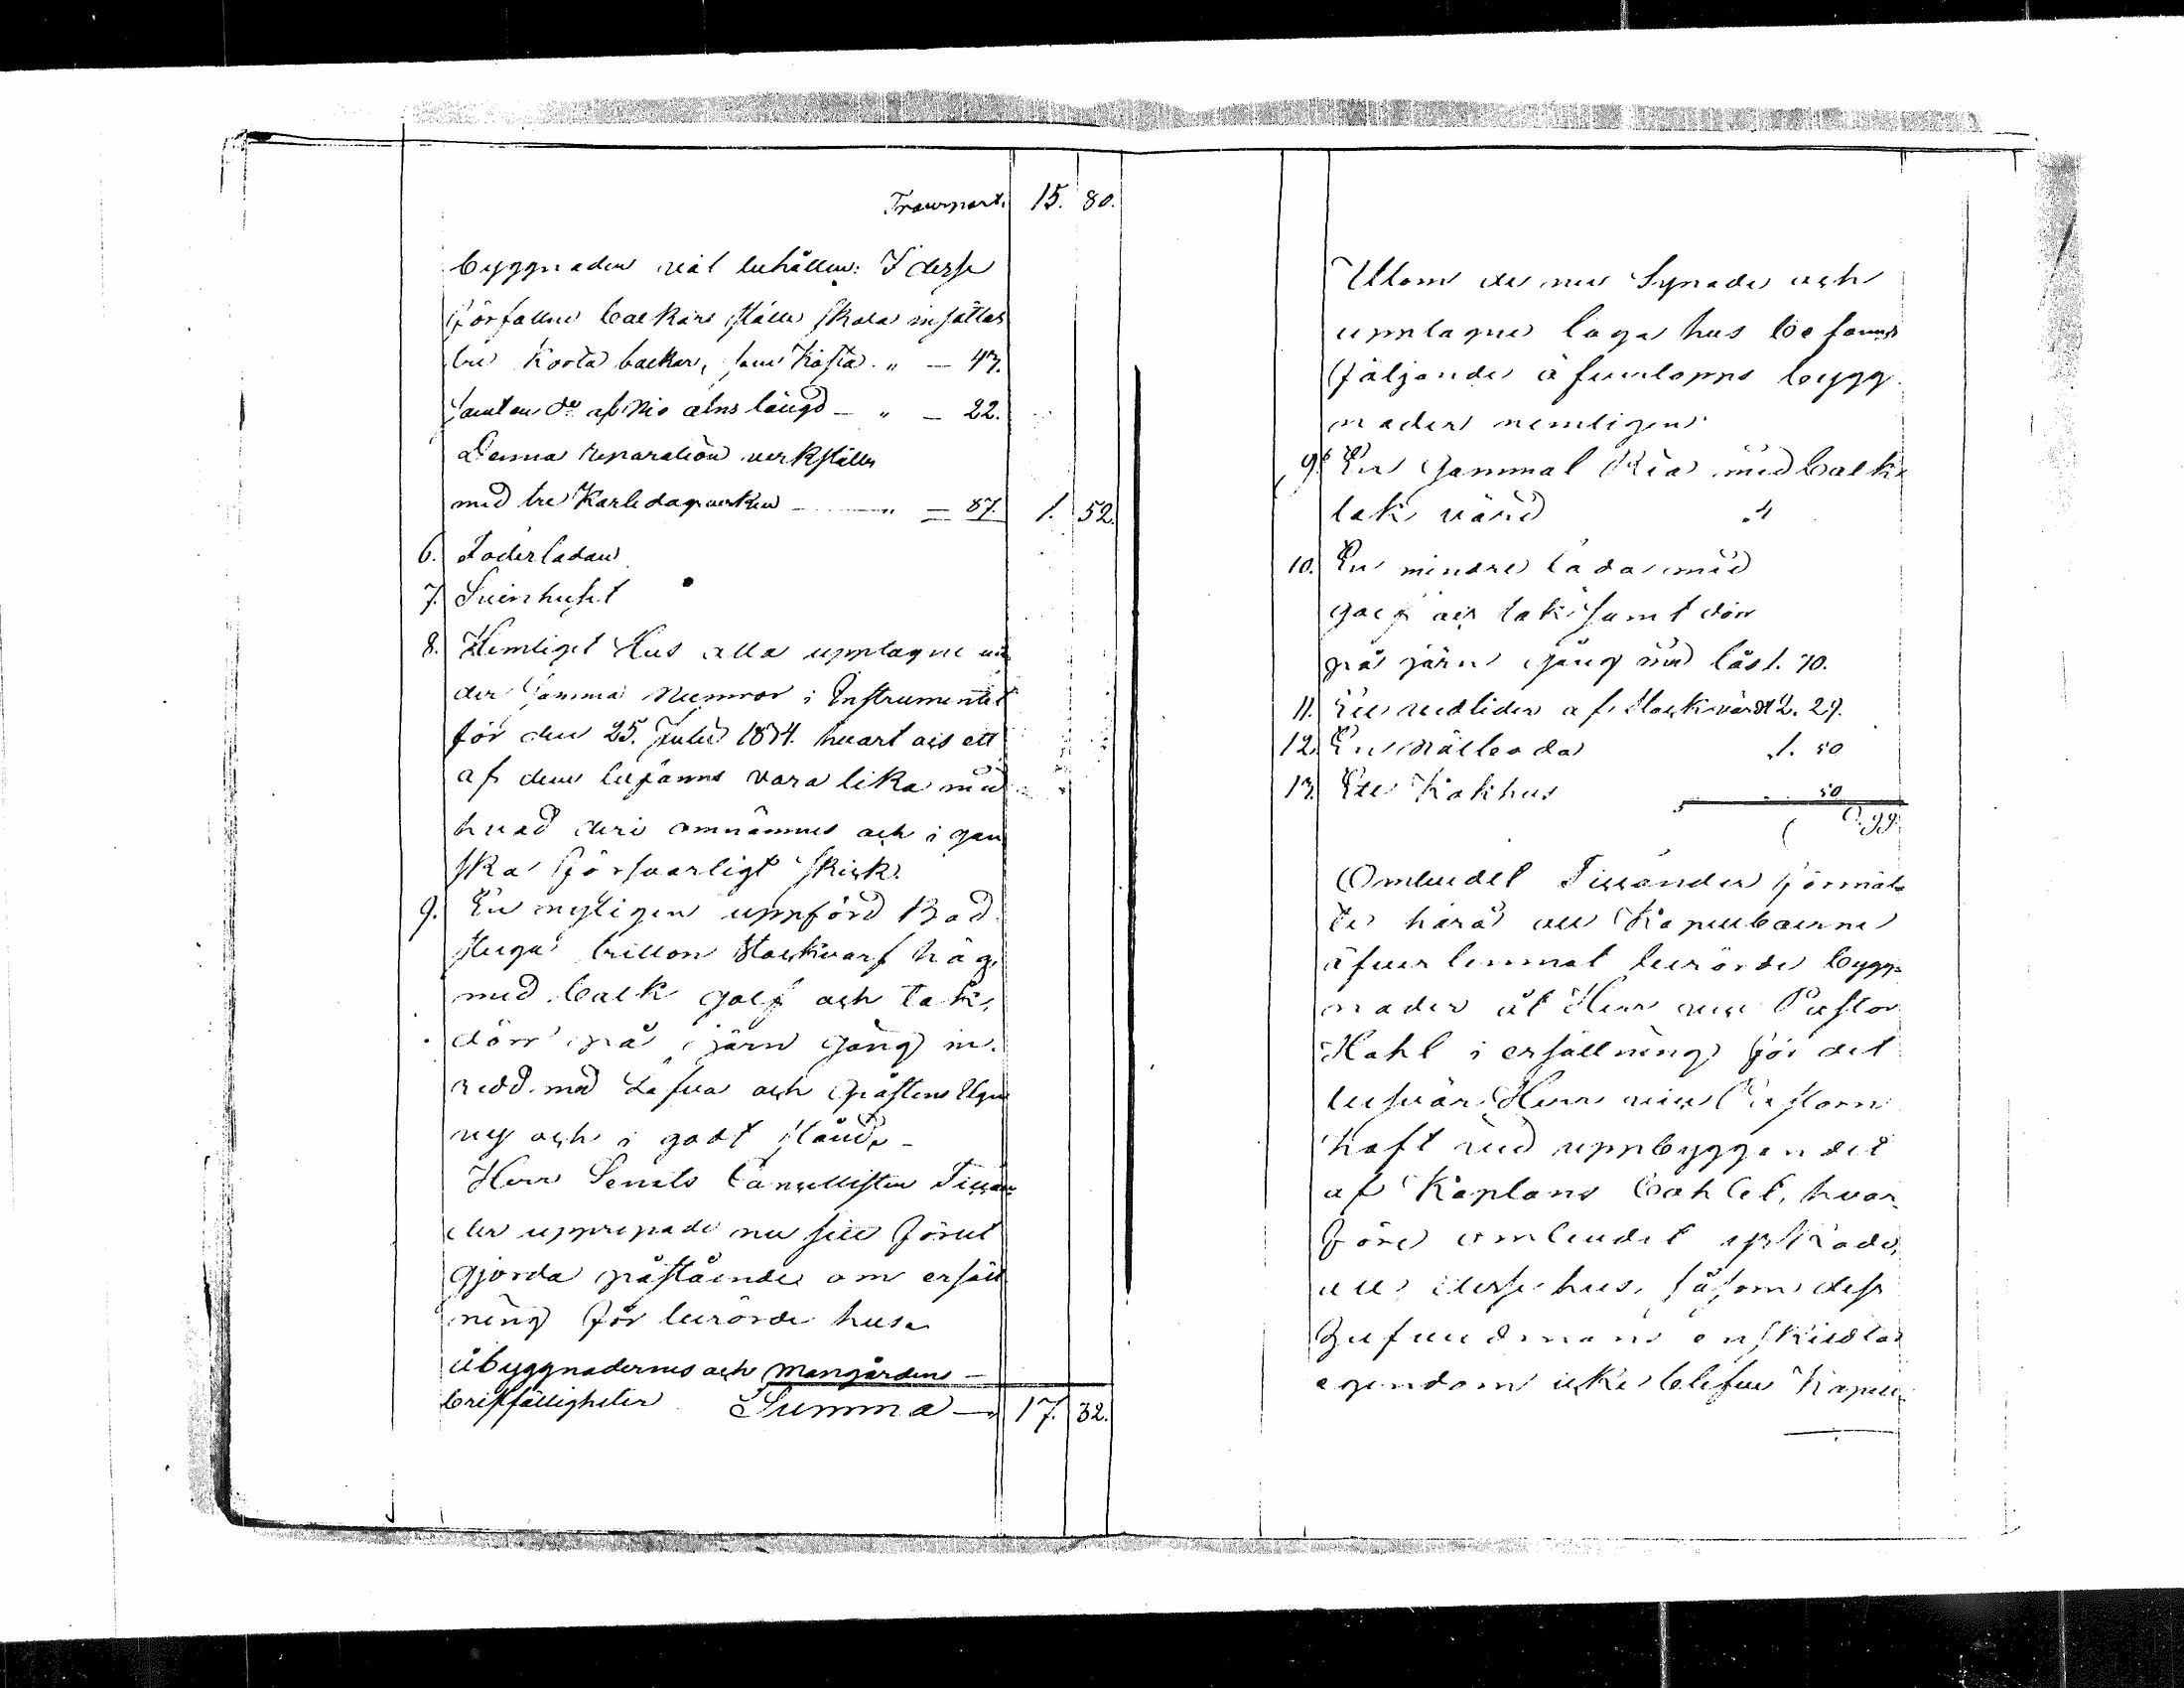 Transport. 15. 80.
byggnaden väl behållen: I desse
förfallne balkars ställe skola insättas
tre korta balkar, som kosta " — 43.
samt en do af nio alns längd — " — 22.
Denna reparation verkställes
med tre Karlsdagsverken — " — 87. 1. 52.
6. Foderladan
7. Svinhuset
8. Hemliget Hus alla upptagne un
der samma Numror i Instrumentet
för den 25. Julii 1834. hvart ock ett
af dem befanns vara lika med
hvad deri omnämnes och i gan
ska försvarligt skick.
9. En nyligen uppförd Bad
stuga tretton stockvarf hög,
med balk golf och tak,
dörr på järn gång in-
redd med Lafva och gråstens Ugn
ny och i godt stånd. —
Herr Senats Cancellisten
der upprepade nu sitt förut
gjorda påstående om ersätt
ning för berörde hus.
Åbyggnadernes och mangårdens —
bristfälligheter Summa — 17. 32.
Utom de nu Synade och
upptagne laga hus befanns
följande öfverlopps bygg
nader nemligen:
9. En Gammal Ria med balk
tak värd 4
10. En mindre lada med
golf och tak samt dörr
på järn gång med lås 1. 70.
11. En vedlider af Stock värdt 2. 29.
12. En 1. 50
13. Ett Kokhus 50
9.99.
Ombudet förmäl-
te härå att Kapellboerne
öfverlemnat berörde bygg-
nader åt Herr vice Pastor
Hahl i ersättning för det
besvär Herr vice Pastorn
haft vid uppbyggandet
af Kaplans bohlet, hvar-
före ombudet yrkade,
att desse hus, såsom dess
hufvudmans enskildta
egendom icke blefve Kapell-